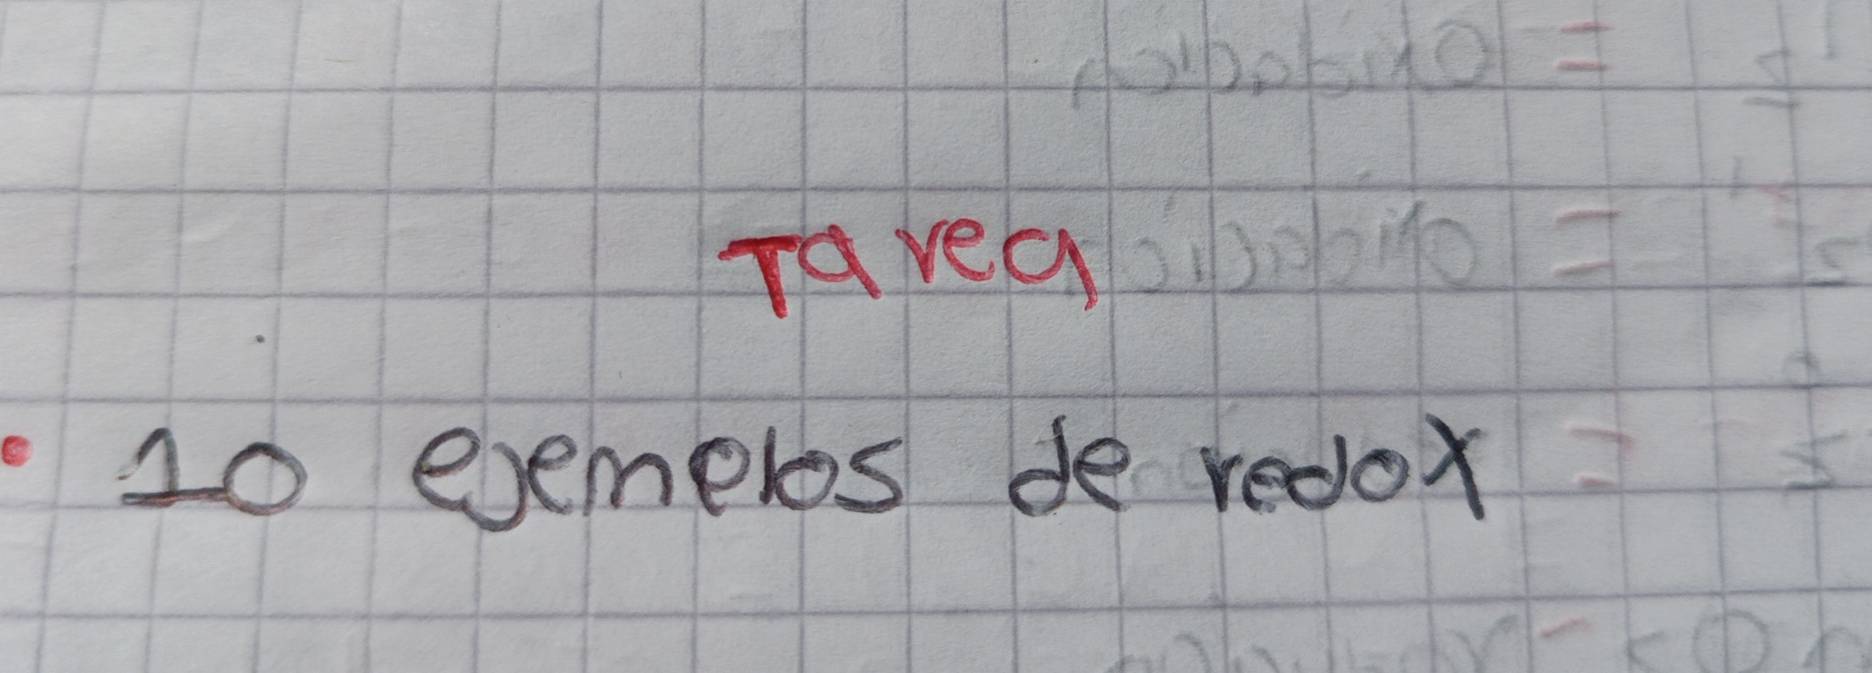 Tarea
• 10 ejemplos de redox